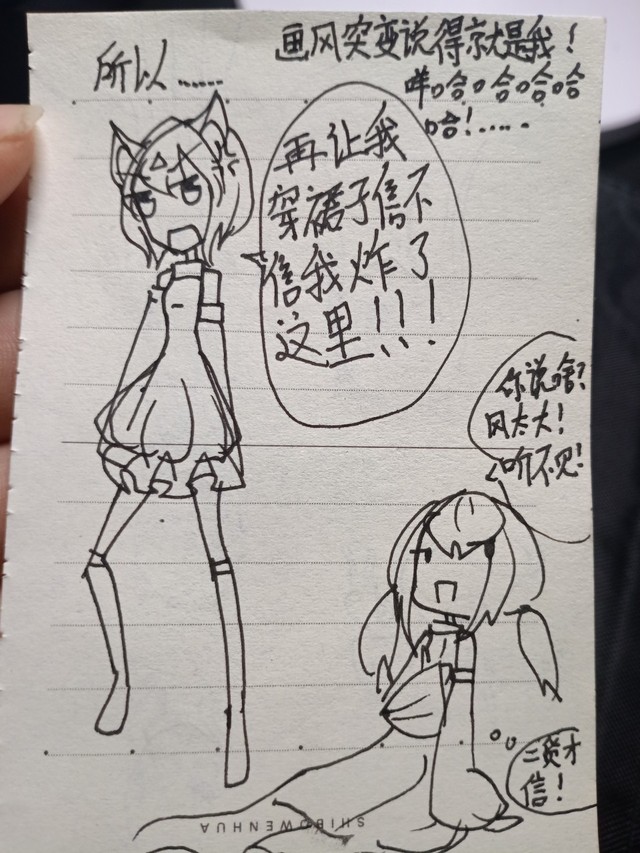 画风突变说得就是我！
咩哈哈哈哈
哈！……
所以……
再让我
穿裙子信不
信我炸了
这里！！！
你说啥？
风太大！
听不见！
二货才
信！
SHIBOWENHUA